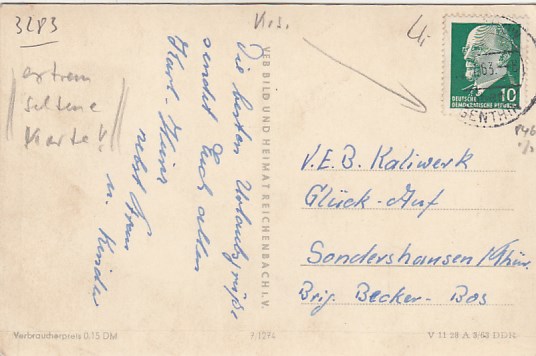 3283
Kos.
4,-
extrem
seltene
Karte!
Die besten Urlaubsgrüße
sendet Euch allen
Karl-Heinz
nebst Frau
u. Kinder
VEB BILD UND HEIMAT REICHENBACH I.V.
10
DEUTSCHE
DEMOKRATISCHE REPUBLIK
GENTHIN
V.E.B. Kaliwerk
Glück-Auf
Sondershausen/Thür.
Brig. Becker-Bos
Verbraucherpreis 0,15 DM
V 11 28 A 3/63 DDR